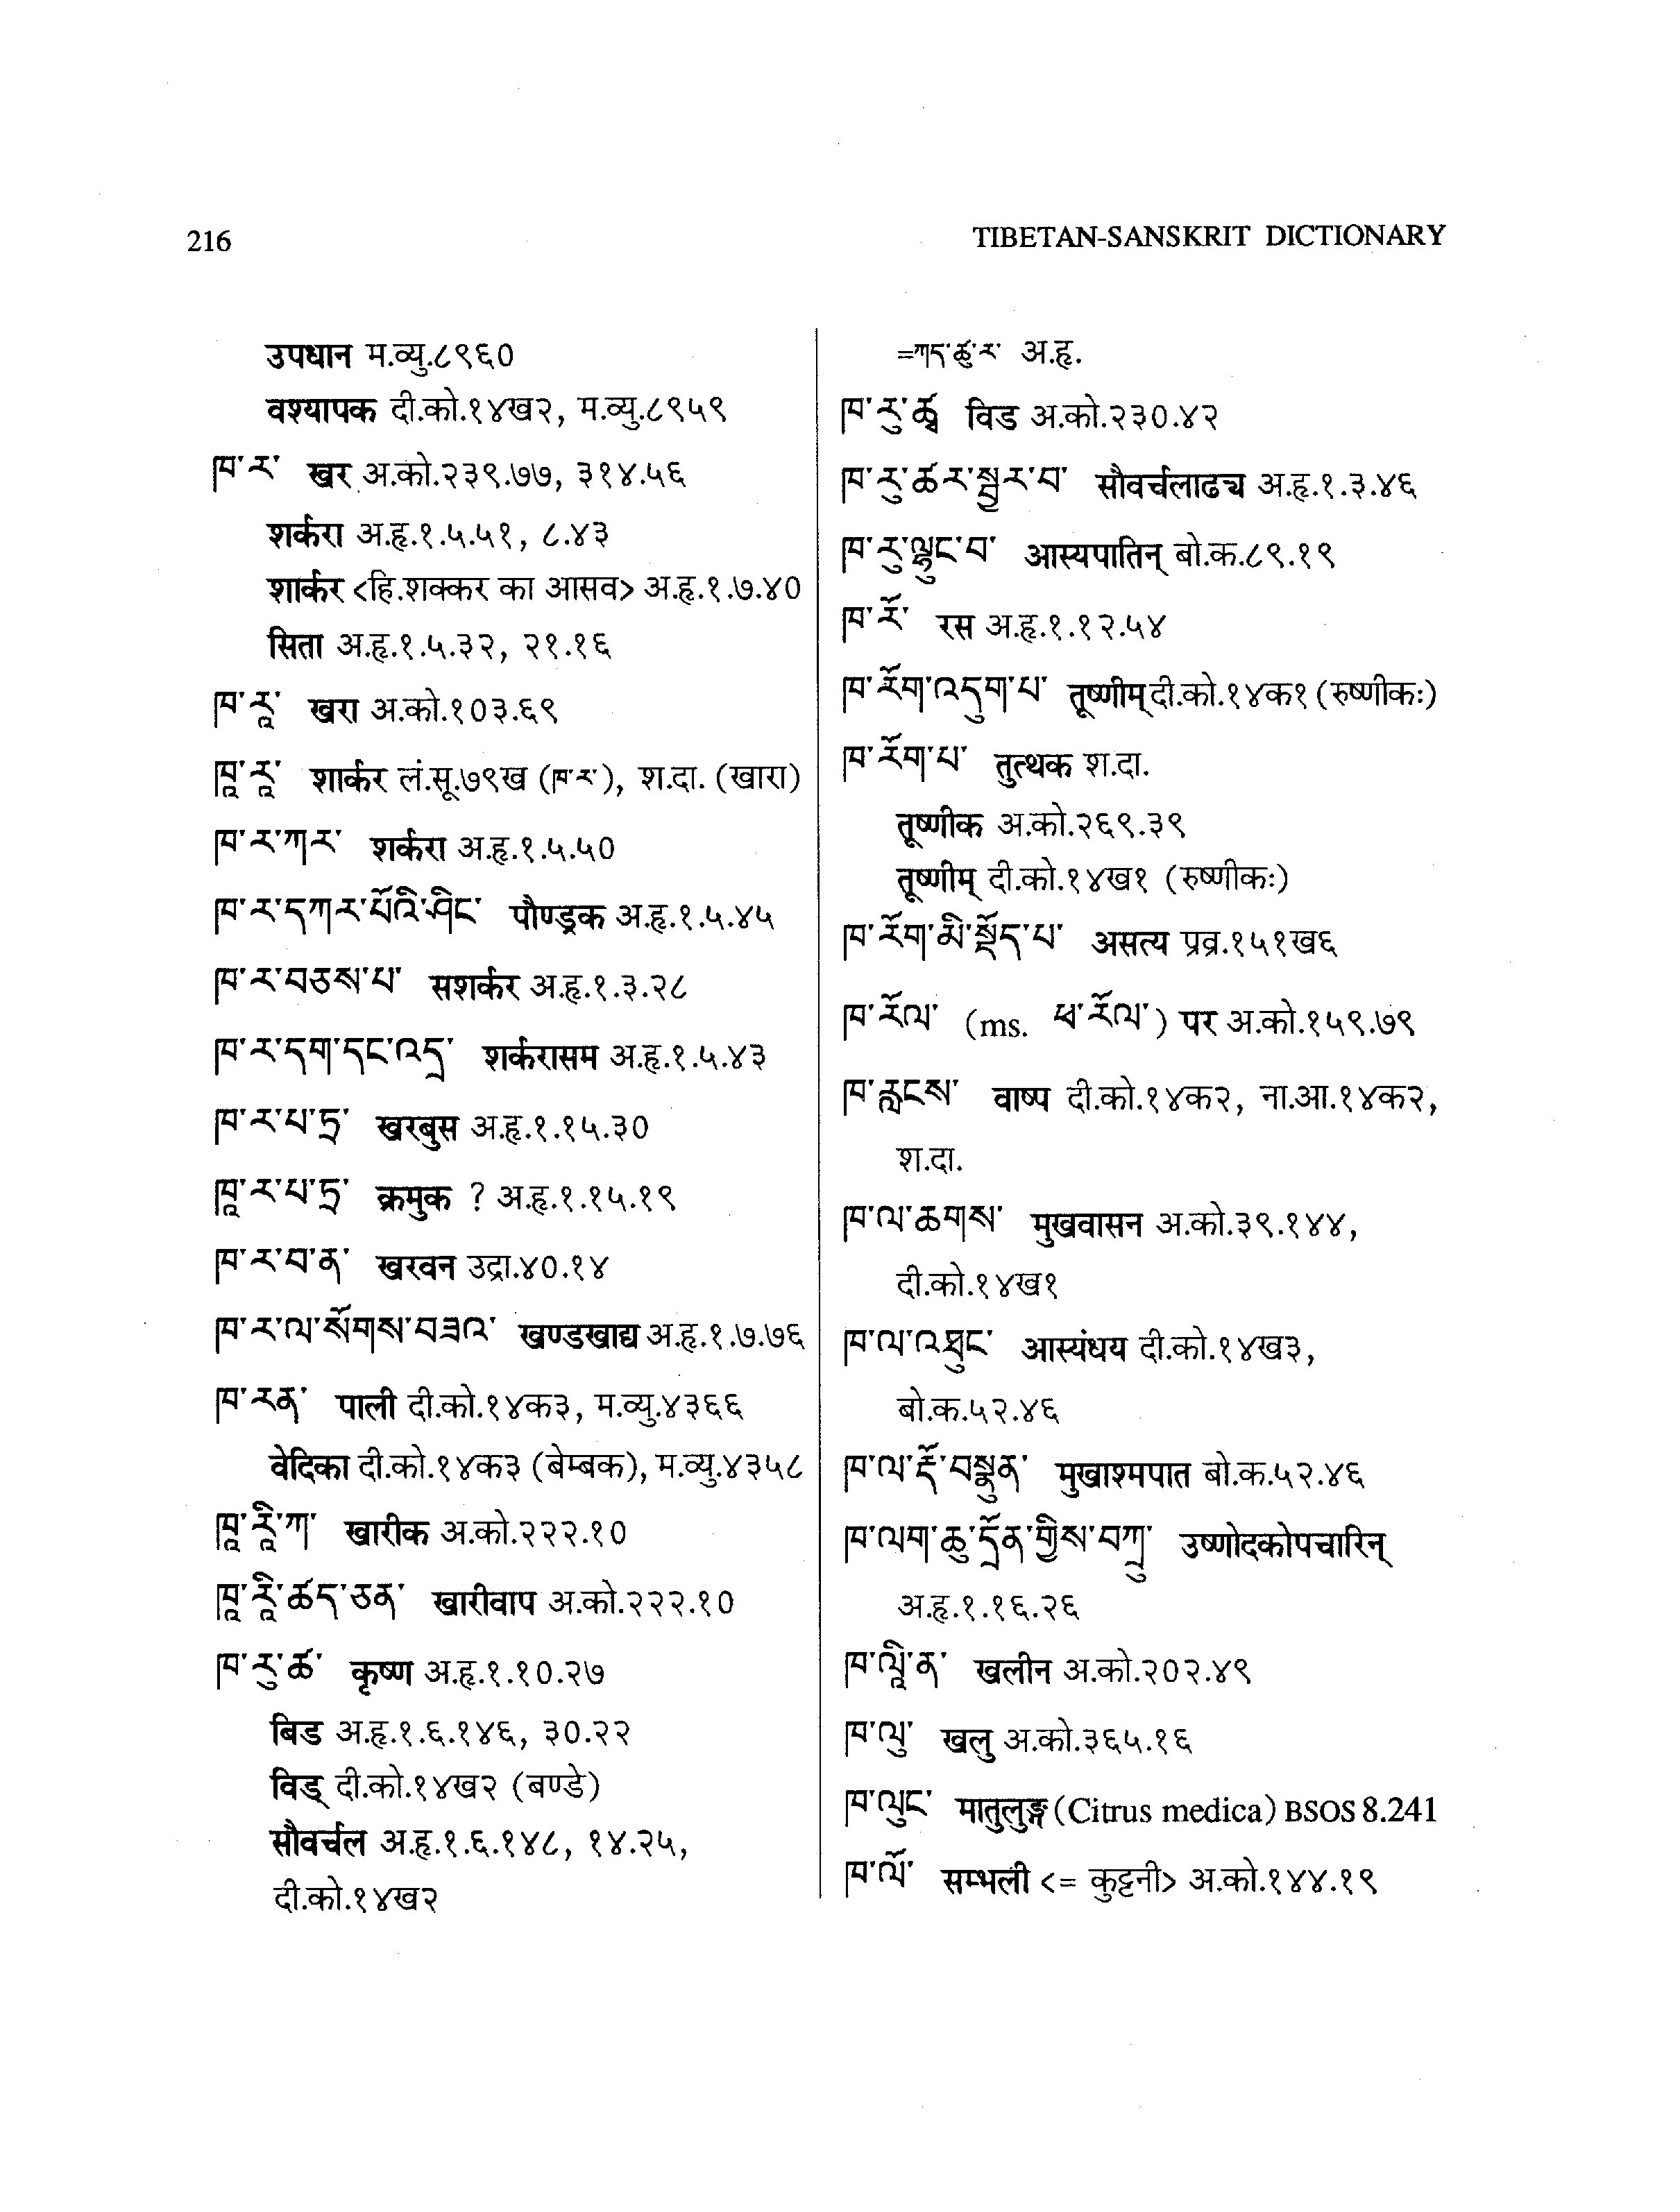 216
TIBETAN-SANSKRIT DICTIONARY
उपधान म.व्यु.८९६०
वश्यापक दी.को.१४ख२, म.व्यु.८९५९
ཁ་ར་ खर अ.को.२३९.७७, ३१४.५६
शर्करा अ.हृ.१.५.५१, ८.४३
शार्कर <हि.शक्कर का आसव> अ.हृ.१.७.४०
सिता अ.हृ.१.५.३२, २१.१६
ཁ་རཱ་ खरा अ.को.१०३.६९
ཁཱ་རཱ་ शार्कर लं.सू.७९ख (ཁ་ར་), श.दा. (खारा)
ཁ་ར་ཀར་ शर्करा अ.हृ.१.५.५०
ཁ་ར་དཀར་པོའི་ཤིང་ पौण्ड्रक अ.हृ.१.५.४५
ཁ་ར་བཅས་པ་ सशर्कर अ.हृ.१.३.२८
ཁ་ར་དག་དང་འདྲ་ शर्करासम अ.हृ.१.५.४३
ཁ་ར་པ་ཏྲ་ खरबुस अ.हृ.१.१५.३०
ཁཱ་ར་པ་ཏྲ་ क्रमुक ? अ.हृ.१.१५.१९
ཁ་ར་བ་ན་ खरवन उद्रा.४०.१४
ཁ་ར་ལ་སོགས་བཟའ་ खण्डखाद्य अ.हृ.१.७.७६
ཁ་རན་ पाली दी.को.१४क३, म.व्यु.४३६६
वेदिका दी.को.१४क३ (बेम्बक), म.व्यु.४३५८
ཁཱ་རཱི་ཀ་ खारीक अ.को.२२२.१०
ཁཱ་རཱི་ཚད་ཅན་ खारीवाप अ.को.२२२.१०
ཁ་རུ་ཚ་ कृष्ण अ.हृ.१.१०.२७
बिड अ.हृ.१.६.१४६, ३०.२२
विड् दी.को.१४ख२ (बण्डे)
सौवर्चल अ.हृ.१.६.१४८, १४.२५,
दी.को.१४ख२
=ཀད་ཚུ་ར་ अ.हृ.
ཁ་རུ་ཚྭ་ विड अ.को.२३०.४२
ཁ་རུ་ཚར་སྦྱར་བ་ सौवर्चलाढ्य अ.हृ.१.३.४६
ཁ་རུ་ལྷུང་བ་ आस्यपातिन् बो.क.८९.१९
ཁ་རོ་ रस अ.हृ.१.१२.५४
ཁ་རོག་འདུག་པ་ तूष्णीम् दी.को.१४क१ (रुष्णीकः)
ཁ་རོག་པ་ तुत्थक श.दा.
तूष्णीक अ.को.२६९.३९
तूष्णीम् दी.को.१४ख१ (रुष्णीकः)
ཁ་རོག་མི་སྡོད་པ་ असत्य प्रव्र.१५१ख६
ཁ་རོལ་ (ms. ཕ་རོལ་) पर अ.को.१५९.७९
ཁ་རླངས་ वाष्प दी.को.१४क२, ना.आ.१४क२,
श.दा.
ཁ་ལ་ཆགས་ मुखवासन अ.को.३९.१४४,
दी.को.१४ख१
ཁ་ལ་འཐུང་ आस्यंधय दी.को.१४ख३,
बो.क.५२.४६
ཁ་ལ་རྡོ་བསྣུན་ मुखाश्मपात बो.क.५२.४६
ཁ་ལག་ཆུ་དྲོན་གྱིས་བཀྲུ་ उष्णोदकोपचारिन्
अ.हृ.१.१६.२६
ཁ་ལཱི་ན་ खलीन अ.को.२०२.४९
ཁ་ལུ་ खलु अ.को.३६५.१६
ཁ་ལུང་ मातुलुङ्ग (Citrus medica) BSOS 8.241
ཁ་ལོ་ सम्भली <= कुट्टनी> अ.को.१४४.१९